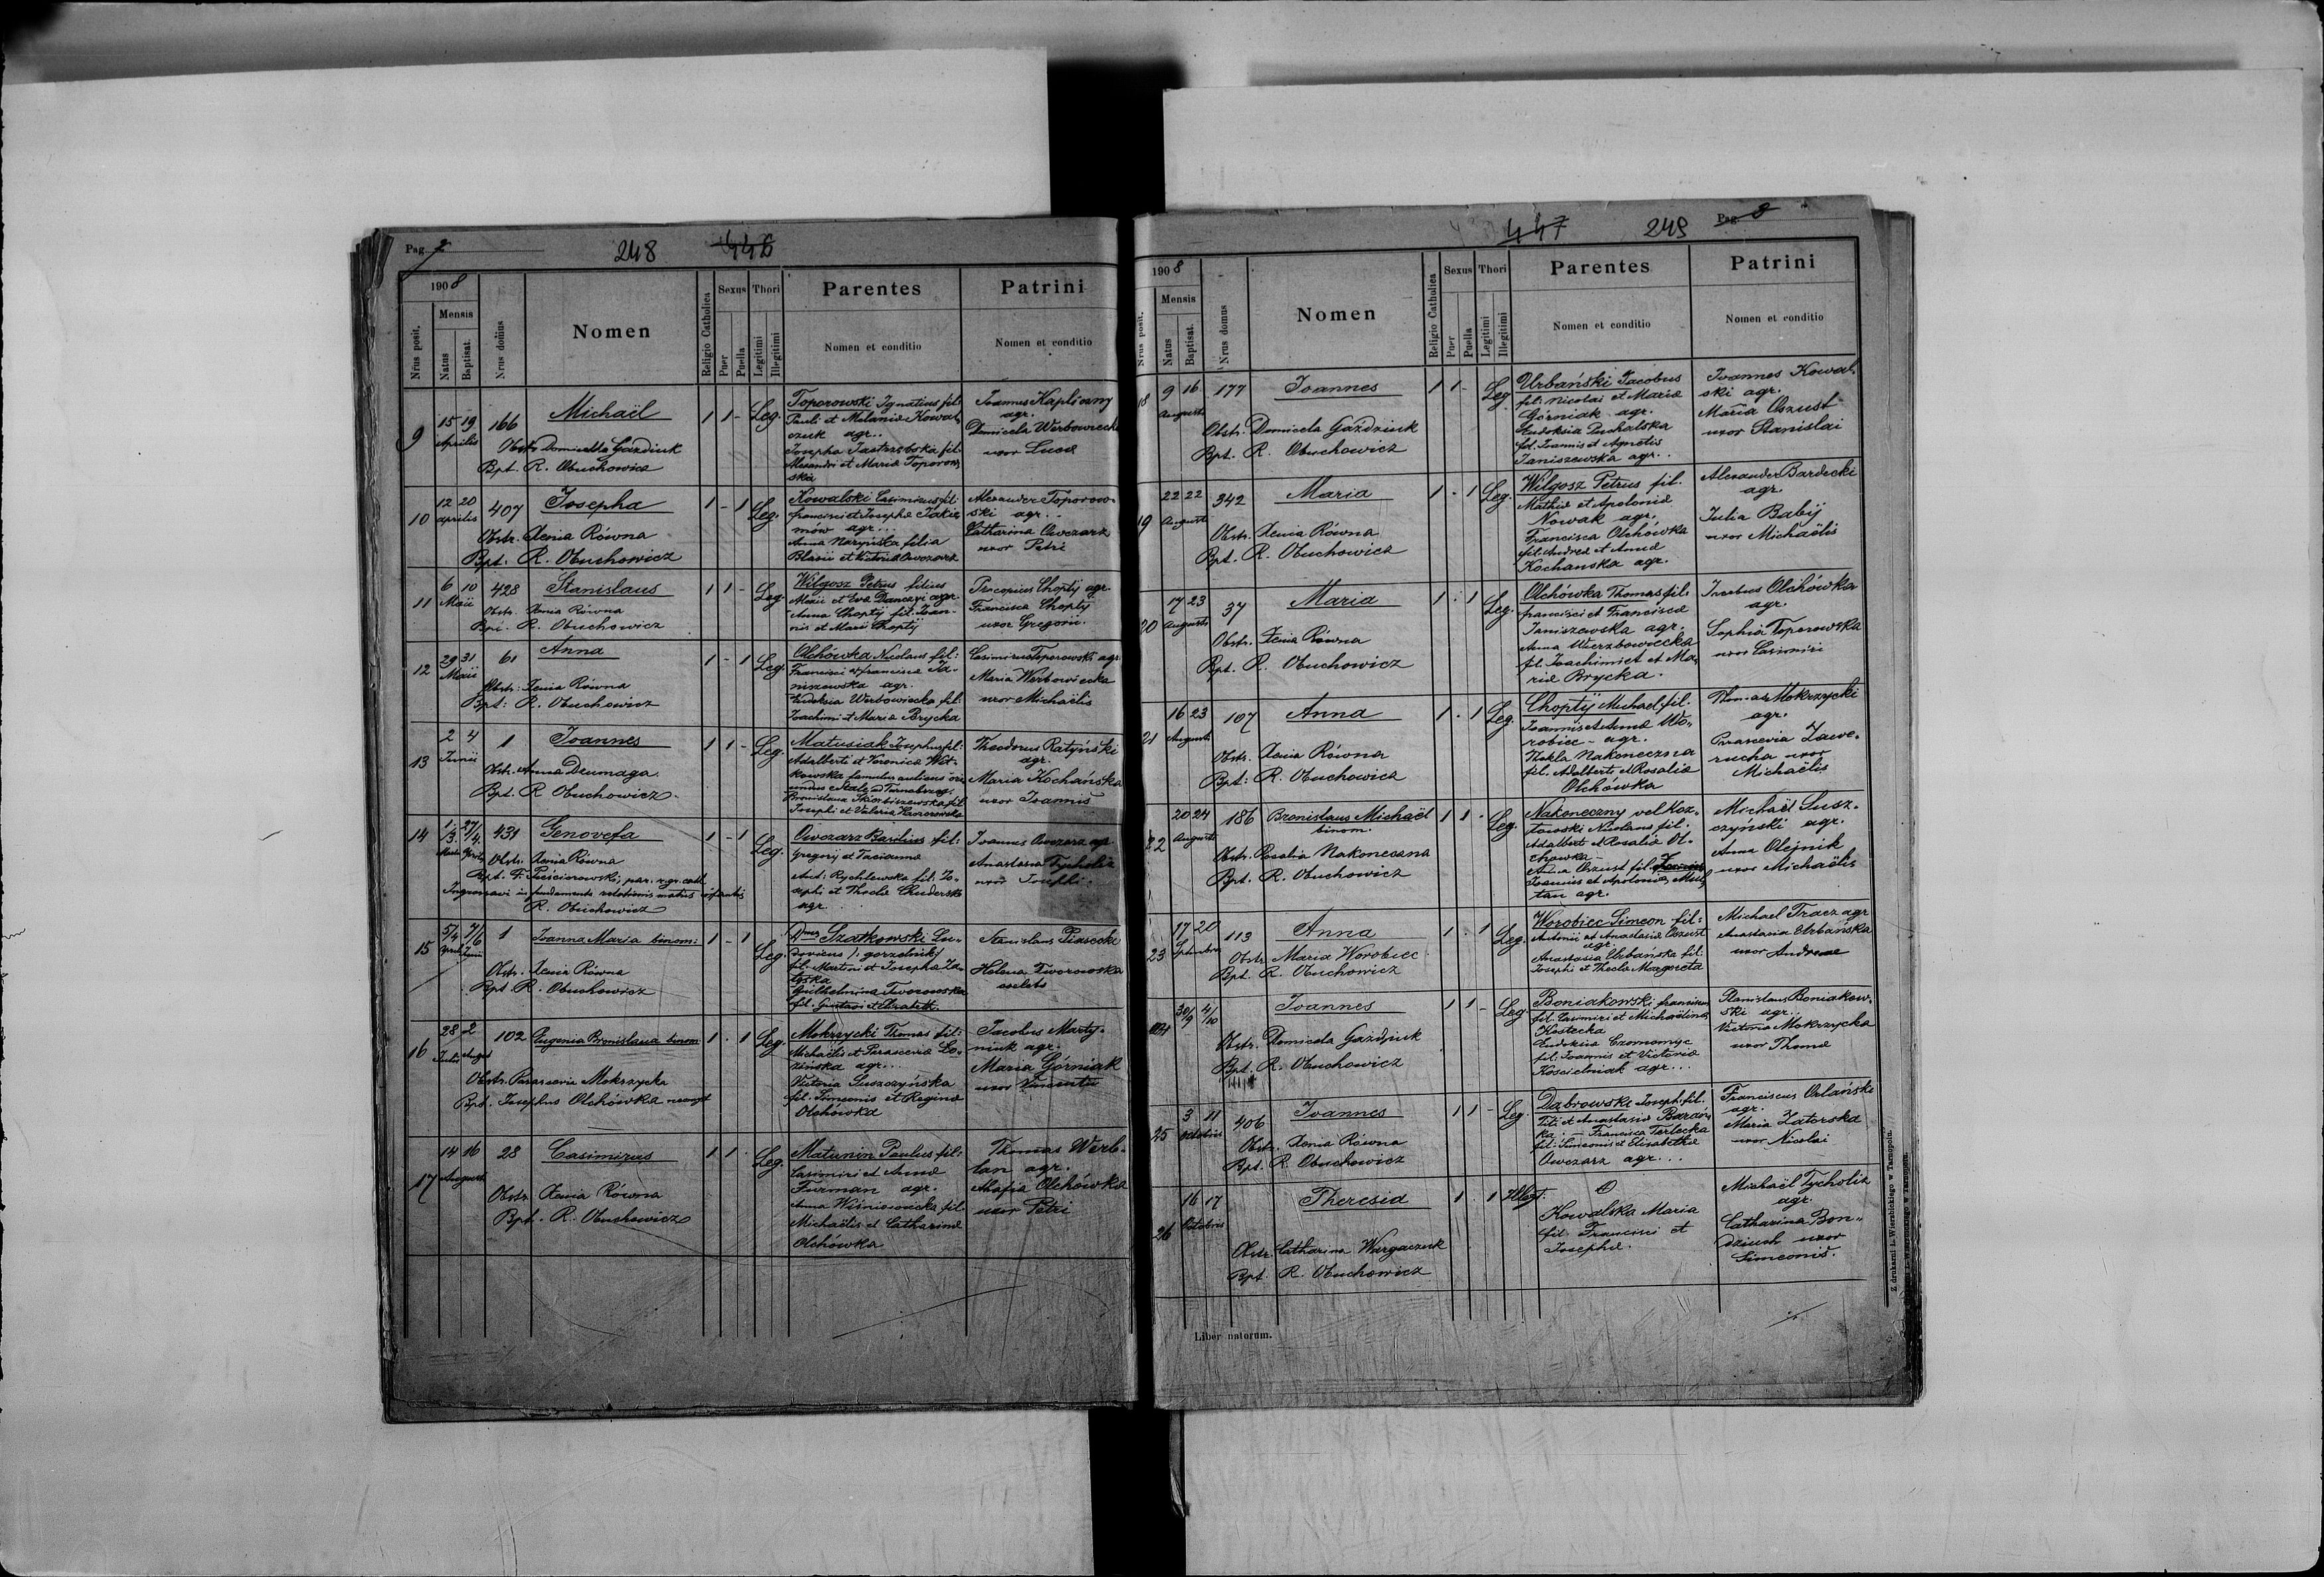 Pag. 2
248 446
1908
Nrus posit.
Mensis
Natus
Baptisat.
Nrus domus
Nomen
Religio Catholica
Sexus
Puer
Puella
Thori
Legitimi
Illegitimi
Parentes
Nomen et conditio
Patrini
Nomen et conditio
9
15 19
Aprilis
166
Michaël
Obstr. Domicella Gazdiuk
Bpt. R. Obuchowicz
1 1 -
Leg.
Toporowski Ignatius fil:
Pauli et Melaniæ Kowal-
czuk agr..
Josepha Jastrzębska fil.
Alexandri et Mariæ Toporow
ska
Joannes Kapliczny
agr.
Domicela Werbowiecka
uxor Lucæ
10
12 20
aprilis
407
Josepha
Obstr. Xenia Równa
Bpt. R. Obuchowicz
1 - 1
Leg.
Kowalski Casimirus fil:
francisci et Josephæ Jakie
mów agr...
Anna Naryńska filia
Blasii et Victoriæ Owczarz
Alexander Toporow-
ski agr..
Catharina Owczarz
uxor Petri
11
6 10
Maii
428
Stanislaus
Obstr. Xenia Równa
Bpt. R. Obuchowicz
1 1 -
Leg.
Wilgosz Petrus filius
et Eva Danczyi agr.
Anna Choptÿ fil. Joan-
nis et Mariæ Choptÿ
Procopius Choptÿ agr.
Francisca Choptÿ
uxor Gregorii.
12
29 31
Maii
61
Anna
Obstr: Xenia Równa
Bpt: R. Obuchowicz
1 - 1
Leg.
Olchówka Nicolaus fil:
Francisci et francisca Ja-
niszewska agr.
Eudoksia Werbowiecka fil:
Joachimi et Maria Brycka
Casimirus Toporowski agr.
Maria Werbowiecka
uxor Michaëlis
13
2 4
Junii
1
Joannes
Obstr. Anna Drumaga.
Bpt. R Obuchowicz.
1 1 -
Leg.
Matusiak Josephus fil:
Adalberti et Veronica Wit-
kowska famulus aulicus ori
undus e Tarnobrzeg.
Bronislava Skorbiszewska fil
Josephi et Valeria
Theodorus Ratyński
agr.
Maria Kochańska
uxor Joannis
14
1/3 27/4
Martii Aprilis
431
Genovefa
Obstr. Xenia Równa
Bpt. par. r. gr. cath.
Ingrossavi in fundamento relationis matris infantis
R. Obuchowicz
1 - 1
Leg.
Owczarz Basilius fil:
Gregorij et Tacianna
Ant: Rychlewska fil. Jo-
sephi et Theclæ Chuderska
agr.
Joannes Owczarz agr
Anastasia Tycholiz
uxor Josephi.
15
5/4 7/6
Aprilis Junii
1
Joanna Maria binom:
Obstr. Xenia Równa
Bpt. R. Obuchowicz
1 - 1
Leg.
Szatkowski Lu-
dovicus /: gorzelnik/
fil. Martini et Josepha Za-
Guilhelmina Tworowska
fil. Gustavi et Elisabeth.
Stanislaus Piasecki
Helena Tworowska
coelebs
16
28 2
Julii August
102
Eugenia Bronislava binom
Obstr. Parascevia Mokrzycka
Bpt. Josephus Olchówka neomyst
1 . 1
Leg.
Mokrzycki Thomas fil:
Michaëlis et Parascevia Lo-
zińska agr...
Victoria Suszczyńska
fil. Simeonis et Reginæ
Olchówka
Jacobus Marty-
niuk agr.
Maria Górniak
uxor Vincentii
17
14 16
Augusti
28
Casimirus
Obstr Xenia Równa
Bpt. R. Obuchowicz
1 1 .
Leg.
Matunin Paulus fil:
Casimiri et Annæ
Furman agr.
Anna Wiśniowiecka fil
Michaëlis et Catharinæ
Olchówka
Thomas Werb-
lan agr.
Ahafia Olchówka
uxor Petri
447 249 Pag.
1908
Nrus posit.
Mensis
Natus
Baptisat.
Nrus domus
Nomen
Religio Catholica
Sexus
Puer
Puella
Thori
Legitimi
Illegitimi
Parentes
Nomen et conditio
Patrini
Nomen et conditio
18
9 16
Augusti
177
Joannes
Obstr. Domicela Gazdziuk
Bpt. R. Obuchowicz
1 1 -
Leg
Urbański Jacobus
fil: Nicolai et Mariæ
Górniak agr.
Eudoksia Puchalska
fil. Joannis et Agnetis
Janiszewska agr..
Joannes Kowal-
ski agr.
Maria Oszust
uxor Stanislai
19
22 22
Augusti
342
Maria
Obstr. Xenia Równa
Bpt. R. Obuchowicz
1 - 1
Leg.
Wilgosz Petrus fil.
Mathiæ et Apoloniæ
Nowak agr.
Francisca Olchówka
fil. Andreæ et Annæ
Kochanska agr.
Alexander Bardecki
agr.
Julia Babij
uxor Michaëlis
20
17 23
Augusti
37
Maria
Obstr. Xenia Równa
Bpt. R. Obuchowicz
1 . 1
Leg.
Olchówka Thomas fil:
francisci et Francisca
Janiszewska agr.
Anna Wierzbowiecka
fil. Joachimi et Ma-
riæ Brycka.
Jacobus Olchówka
agr.
Sophia Toporowska
uxor Casimiri
21
16 23
August.
107
Anna
Obstr. Xenia Równa
Bpt: R. Obuchowicz
1 . 1
Leg.
Choptÿ Michael fil.
Joannis et Annæ Wo-
robiec - agr.
Thekla Nakoneczna
fil. Adalberti et Rosaliæ
Olchówka
Thomas Mokrzycki
agr.
Parascevia Zawe-
rucha uxor
Michaëlis
22
20 24
Augusti
186
Bronislaus Michaël
binom.
Obstr. Rosalia Nakoneczna
Bpt. R. Obuchowicz
1 1 .
Leg.
Nakoneczny vel Koz-
łowski Nicolaus fil.
Adalberti et Rosaliæ Ol-
chowka -
Anna Oszust fil.
Joannis et Apolonia Mul
tan agr.
Michaël Susz-
czyński agr.
Anna Olejnik
uxor Michaëlis
23
17 20
Septembris
113
Anna
Obstr. Maria Worobiec
Bpt. R. Obuchowicz
1 . 1
Leg.
Worobiec Simeon fil:
Antonii et Anastasiæ Oszust
agr.
Anastasia Urbańska fil.
Josephi et Thecla Margareta
Michael Tracz agr
Anastasia Urbańska
uxor Andreae
24
30/9 4/10
Joannes
Obstr. Domicela Gazdziuk
Bpt. R. Obuchowicz
1 1 -
Leg
Boniakowski franciscus
fil. Casimiri et Michaëlina
Kostecka
Eudoksia Czornomyc
fil: Joannis et Victoriæ
Koscielniak agr...
Stanislaus Boniakow-
ski agr.
Victoria Mokrzycka
uxor Thomæ
25
3 11
Octobris
406
Joannes
Obstr. Xenia Równa
Bpt. R. Obuchowicz
1 1 -
Leg.
Dąbrowski Joseph. fil.
Titi et Anastasiæ
Francisca Terlecka
fil: Simeonis et Elisabetha
Owczarz agr...
Franciscus Orlański
agr.
Maria Zatorska
uxor Nicolai
26
16 17
Octobris
Theresia
Obstr. Catharina Wargaczuk
Bpt. R. Obuchowicz
1 . 1
Illegt.
Kowalska Maria
fil. Francisci et
Josephæ.
Michaël Tycholiz
agr.
Catharina Bon-
dziuch uxor
Simeonis.
Liber natorum.
Z drukarni L. Wierzbickiego w Tarnopolu.